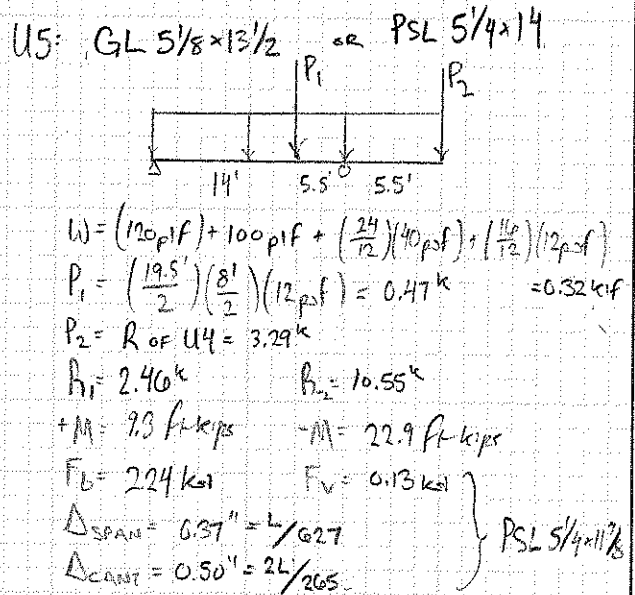 U5: GL 5 1/8 x 13 1/2 OR PSL 5 1/4 x 14
P1 P2
14' 5.5' 5.5'
W = (120 plf) + 100 plf + (24/12)(40 psf) + (16/12)(12 psf)
= 0.32 klf
P1 = (19.5'/2)(8'/2)(12 psf) = 0.47 k
P2 = R OF U4 = 3.29 k
R1 = 2.46 k R2 = 10.55 k
+M = 9.3 ft-kips -M = 22.9 ft-kips
Fb = 2.24 ksi Fv = 0.13 ksi
ΔSPAN = 0.37" = L/627
PSL 5 1/4 x 11 7/8
ΔCANT = 0.50" = 2L/265